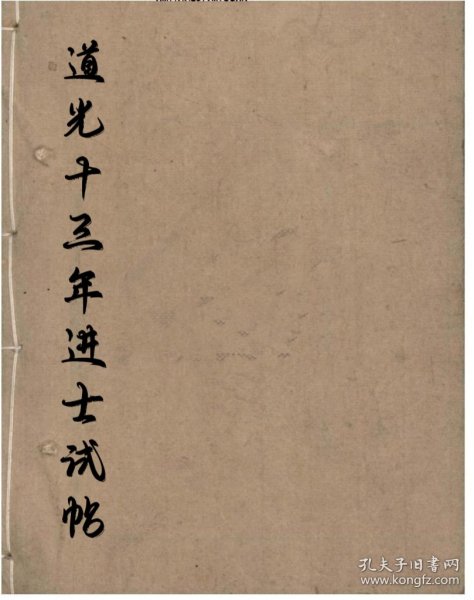 道光十三年进士试帖
孔夫子旧书网
www.kongfz.com